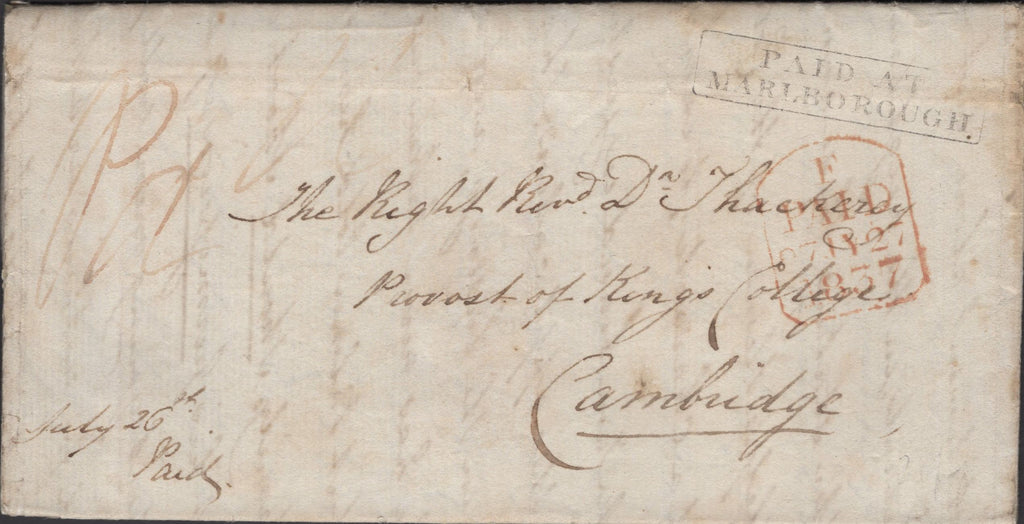 PAID AT
MARLBOROUGH.
F
PAID
27 JY 27
1837
The Right Revd. Dr Thackeray
Provost of Kings College
Cambridge
July 26th.
Paid